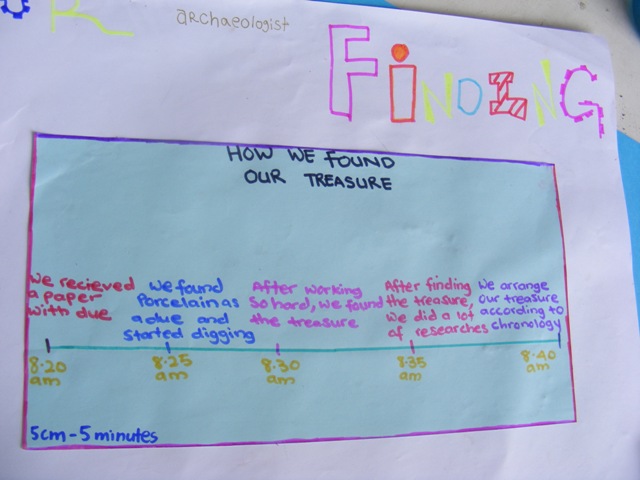 archaeologist
FiNDING
HOW WE FOUND
OUR TREASURE
We recieved
a paper
with clue
We found
Porcelain as
a clue and
started digging
After working
so hard, we found
the treasure
After finding
the treasure,
we did a lot
of researches
We arrange
our treasure
according to
chronology
8.20
am
8.25
am
8.30
am
8.35
am
8.40
am
5cm-5 minutes